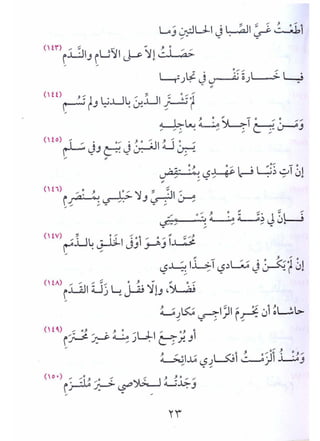 اطَعْتُ غَيَّ الصِّبا في الحالَتينِ وَما
حَصَلْتُ إلاّ على الآثامِ والنَّدَمِ (١٤٣)
فيا خَسَارَةَ نَفْسٍ في تجارتها
لَمْ تَشْتَرِ الدِّينَ بالدنيا ولم تَسُمِ (١٤٤)
وَمَنْ يَبِعْ آجِلاً مِنْهُ بعاجِلِهِ
يَبِنْ لَهُ الغَبْنُ في بَيْعٍ وفي سَلَمِ (١٤٥)
إنْ آتِ ذَنْبًا فما عَهْدِي بِمُنْتَقِضٍ
مِنَ النَّبِيِّ ولا حَبْلِي بِمُنْصَرِمِ (١٤٦)
فَإنَّ لي ذِمَّةً مِنْهُ بِتَسْمِيَتِي
مُحَمَّداً وَهْوَ أوْفَى الخَلْقِ بالذِّمَمِ (١٤٧)
إنْ لَمْ يَكُنْ في مَعادِي آخِذًا بِيَدِي
فَضْلاً، وإلّا فَقُلْ يا زَلَّةَ القَدَمِ (١٤٨)
حاشاهُ أن يَحْرِمَ الرَّاجِي مَكارِمَهُ
أو يُرْجِعَ الجارَ مِنْهُ غَيرَ مُحْتَرَمِ (١٤٩)
وَمُنْذُ ألْزَمْتُ أفكارِي مَدائِحَهُ
وَجَدْتُهُ لِخَلاصِي خَيْرَ مُلْتَزِمِ (١٥٠)
٢٣